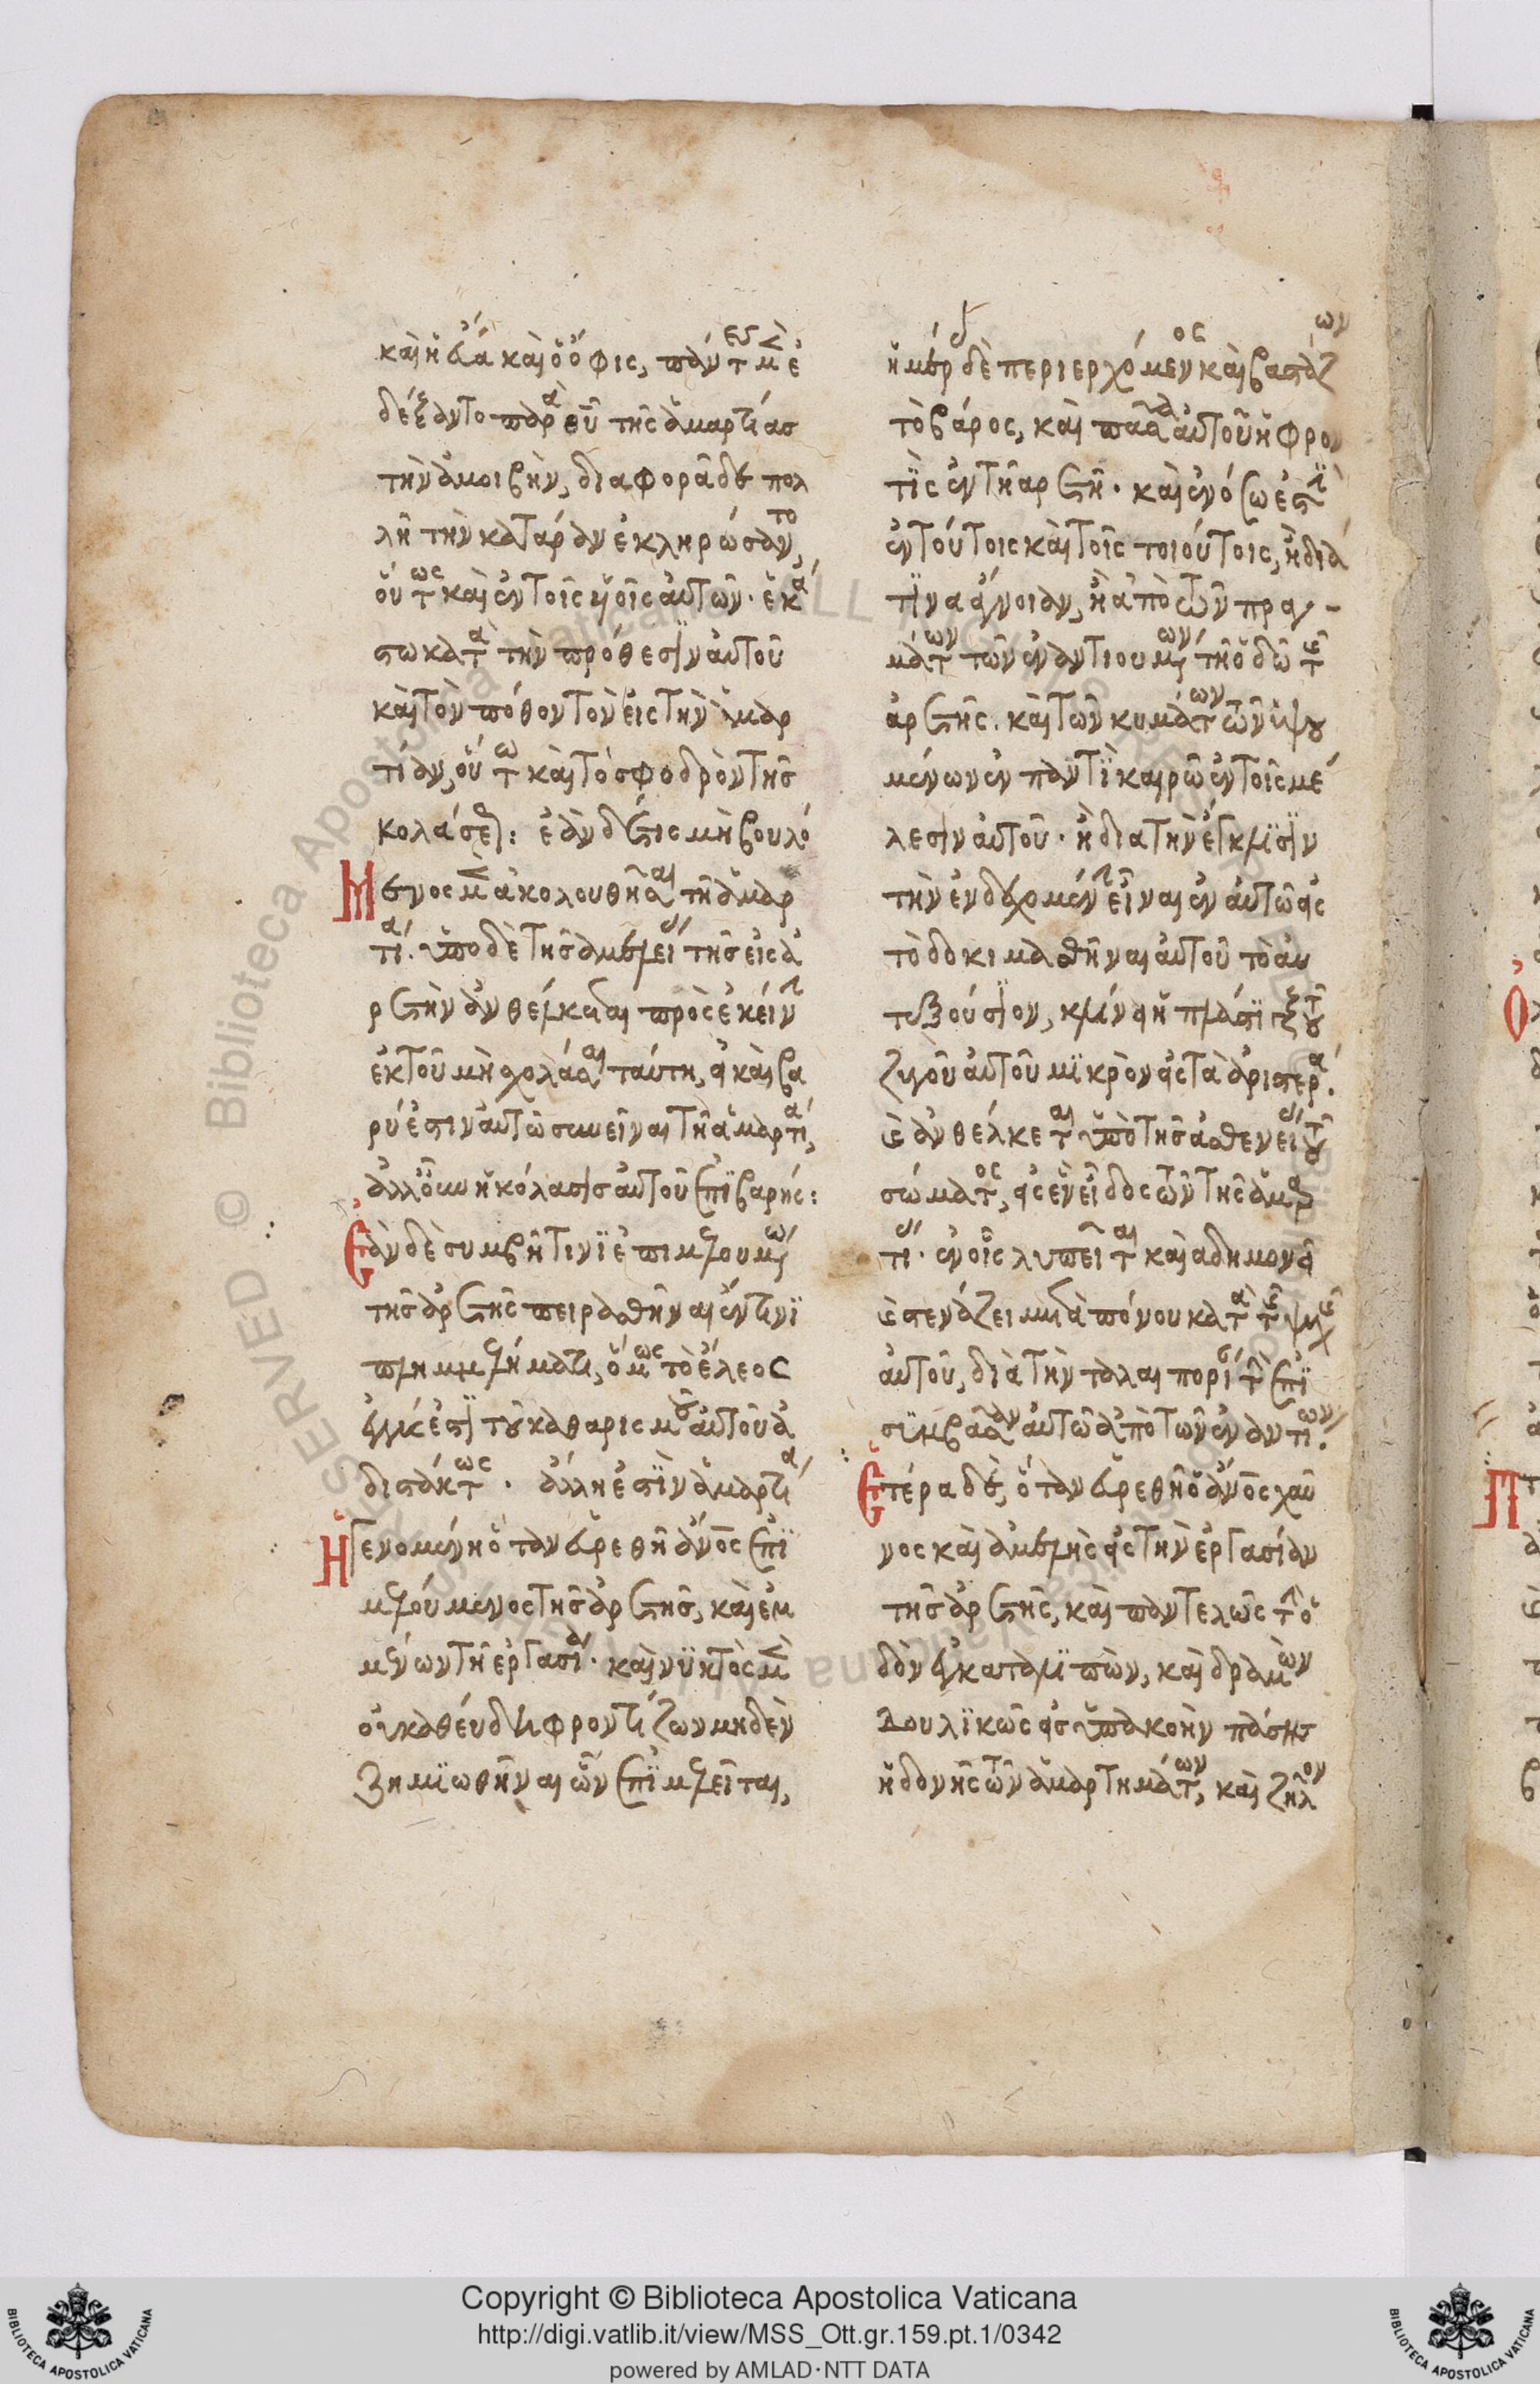 καὶ ἡ εὔα καὶ ὁ ὄφις, πάντες μὲν ἐ
δέξαντο παρὰ θῦ τῆς ἁμαρτίας
τὴν ἀμοιβὴν, διαφορᾶ δὲ πολ
λῆ τὴν κατάραν ἐκληρώσαντο,
οὕτως καὶ ἐν τοῖς υἱοῖς αὐτῶν· ἑκά
στω κατὰ τὴν πρόθεσιν αὐτοῦ
καὶ τὸν πόθον τὸν εἰς τὴν ἁμαρ
τίαν, οὕτω καὶ τὸ σφοδρὸν τῆς
κολάσεως: ἐὰν δέ τις μὴ βουλό
Μενος μὲν ἀκολουθῆσαι τῆ ἁμαρ
τία. ὑπὸ δὲ τῆς ἀμελείας τῆς εἰς ἀ
ρετὴν ἀνθέλκεσθαι πρὸς ἐκείνην
ἐκ τοῦ μὴ σχολάσαι ταύτη, εἰ καὶ βα
ρύ ἐστιν αὐτῶ συνεῖναι τῆ ἁμαρτία,
ἀλλ' οὖν ἡ κόλασις αὐτοῦ ἐπὶ βαρής:
Ἐὰν δὲ συμβῆ τινὶ ἐπιμελουμένω
τῆς ἀρετῆς πειρασθῆναι ἔν τινι
πλημμελήματι, ὅμως τὸ ἔλεος
ἐγγύς ἐστι τοῦ καθαρισμοῦ αὐτοῦ ἀ
διστάκτως. ἄλλη ἐστὶν ἁμαρτία
Ἡ γενομένη ὅταν εὑρεθῆ ἄνος ἐπι
μελούμενος τῆς ἀρετῆς, καὶ ἐμ
μένων τῆ ἐργασία· καὶ νυκτὸς μὲν
οὐ καθεύδει φροντίζων μηδὲν
ζημιωθῆναι ὧν ἐπιμελεῖται,
ἡμέρας δὲ περιερχόμενος καὶ βαστάζων
τὸ βάρος, καὶ πᾶσα αὐτοῦ ἡ φρον
τὶς ἐν τῆ ἀρετῆ· καὶ ἐν ὅσω ἐστὶν
ἐν τούτοις καὶ τοῖς τοιούτοις, ἢ διά
τινα ἄγνοιαν, ἢ ἀπὸ τῶν πραγ-
μάτων τῶν ἐναντιουμένων τῆ ὁδῶ τῆς
ἀρετῆς. καὶ τῶν κυμάτων τῶν ὑψου
μένων ἐν παντὶ καιρῶ ἐν τοῖς μέ
λεσιν αὐτοῦ· ἢ διὰ τὴν ἔκκλισιν
τὴν ἐνδεχομένην εἶναι ἐν αὐτῶ εἰς
τὸ δοκιμασθῆναι αὐτοῦ τὸ αὐ
τεξούσιον, κλίνει ἡ πλάστιξ τοῦ
ζυγοῦ αὐτοῦ μικρὸν εἰς τὰ ἀριστερά.
καὶ ἀνθέλκεται ὑπὸ τῆς ἀσθενείας τοῦ
σώματος, εἰς ἓν εἶδος τῶν τῆς ἁμαρ
τίας· ἐν οἷς λυπεῖται καὶ ἀδημονεῖ
καὶ στενάζει μετὰ πόνου κατὰ τῆς ψυχῆς
αὐτοῦ, διὰ τὴν ταλαιπορίαν τὴν ἐπι
συμβᾶσαν αὐτῶ ἀπὸ τῶν ἐναντίων.
Ἑτέρα δὲ, ὅταν εὑρεθῆ ὁ ἄνος χαῦ
νος καὶ ἀμελὴς εἰς τὴν ἐργασίαν
τῆς ἀρετῆς, καὶ παντελῶς τὴν ὁ
δὸν ἐγκαταλιπὼν, καὶ δραμὼν
δουλικῶς εἰς ὑπακοὴν πάσης
ἡδονῆς τῶν ἁμαρτημάτων, καὶ ζῆλον
Copyright © Biblioteca Apostolica Vaticana
http://digi.vatlib.it/view/MSS_Ott.gr.159.pt.1/0342
powered by AMLAD·NTT DATA